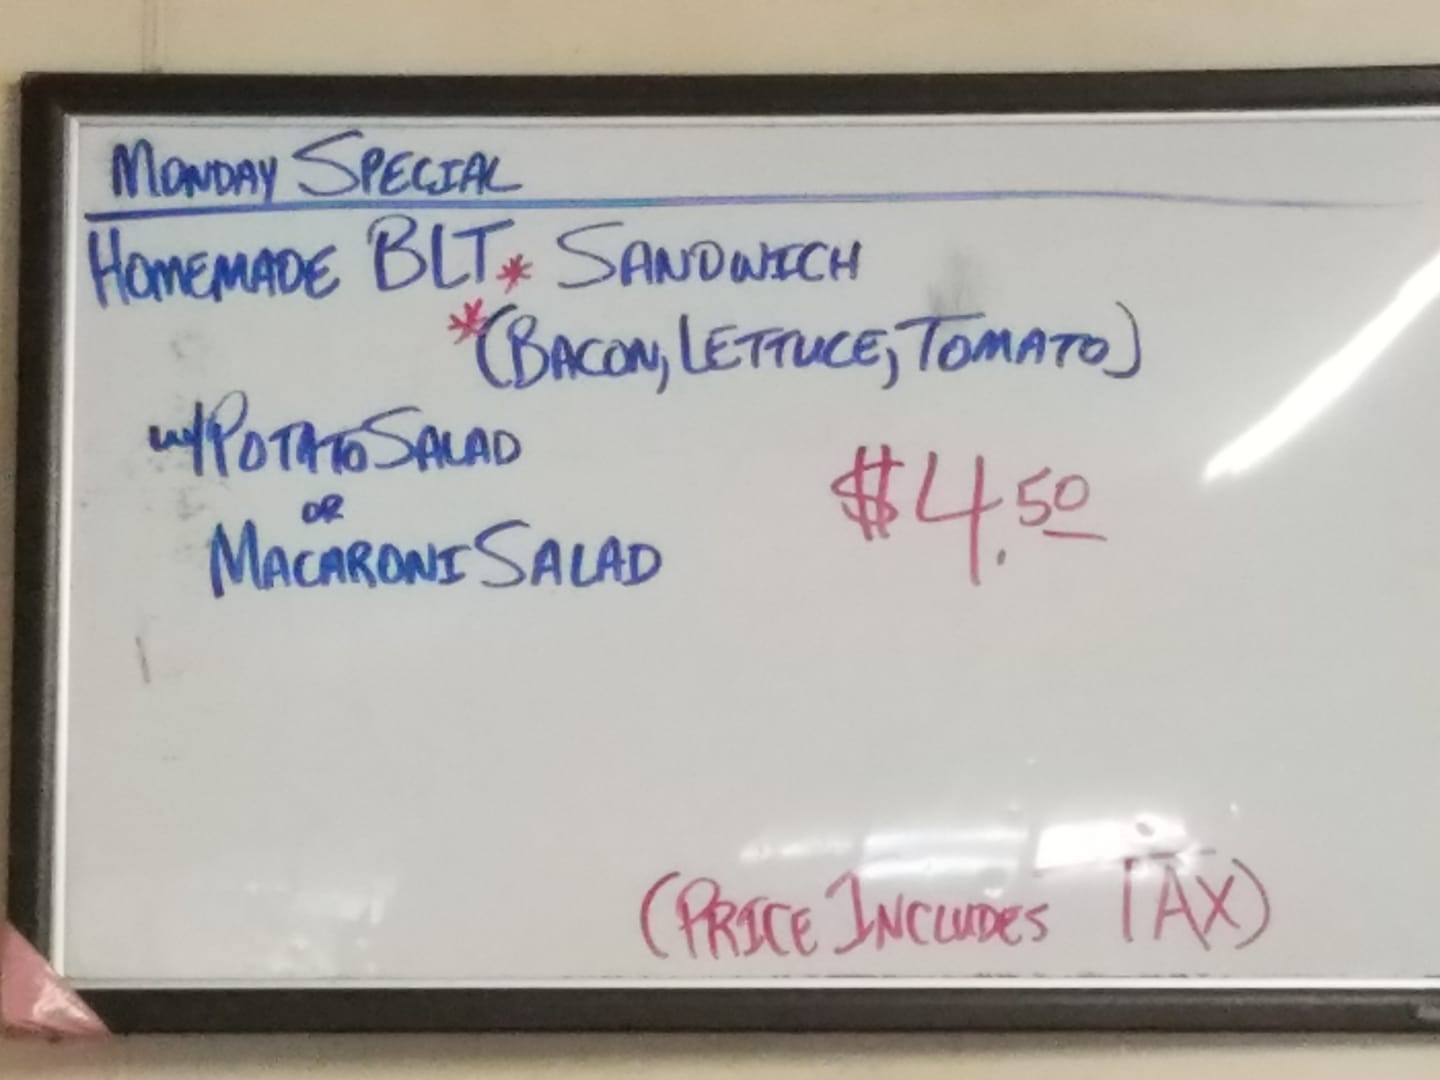 MONDAY SPECIAL
HOMEMADE BLT* SANDWICH
*(BACON, LETTUCE, TOMATO)
w/ POTATO SALAD
OR
MACARONI SALAD
$4.50
(PRICE INCLUDES TAX)